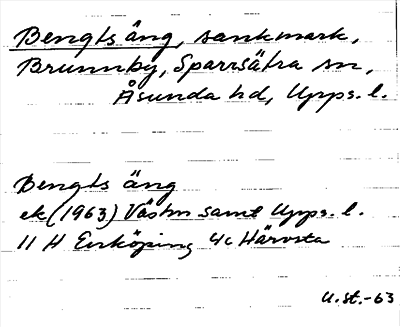 Bengts äng, sankmark,
Brunnby, Sparrsätra sn,
Åsunda hd, Upps. l.
Bengts äng
ek (1963) Västm samt Upps. l.
11 H Enköping 4c Härvsta
U.St.-63